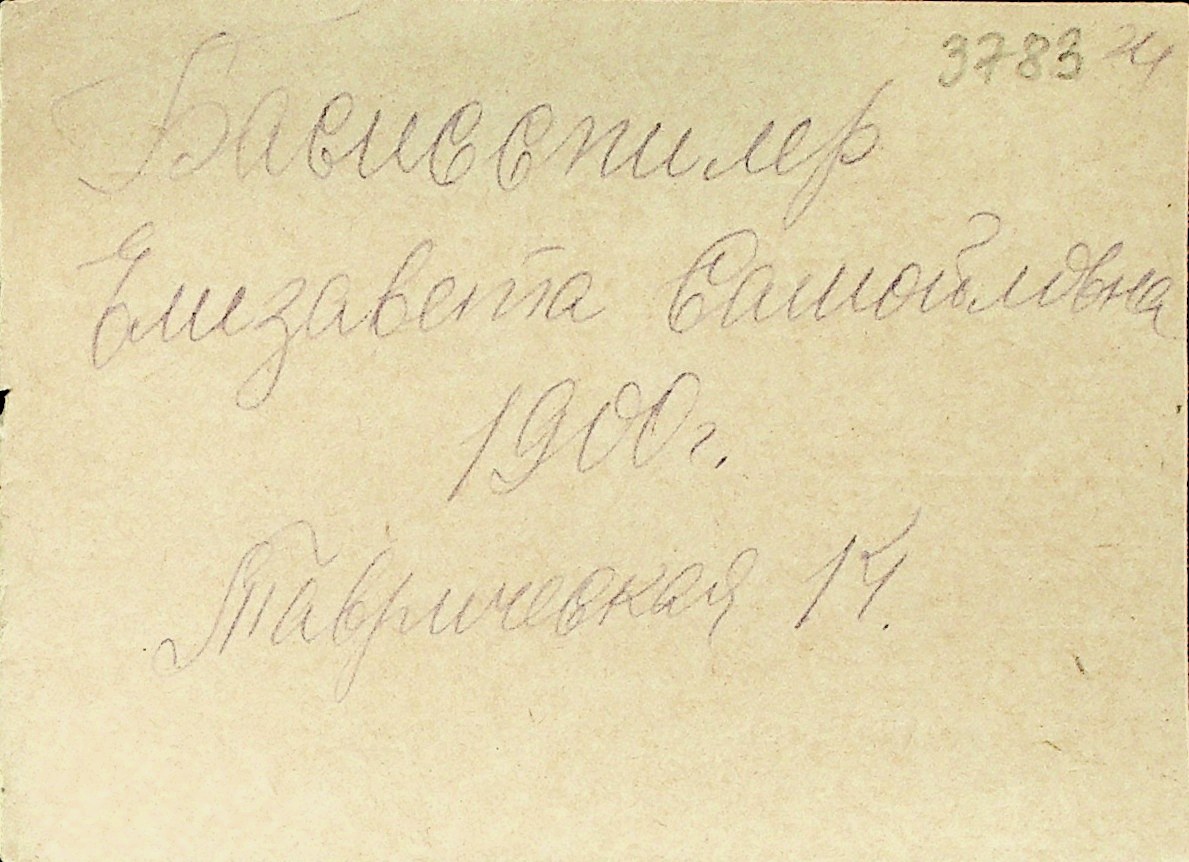 3783 24
Басисспилер
Елизавета Самойловна
1900 г.
Таврическая 14.